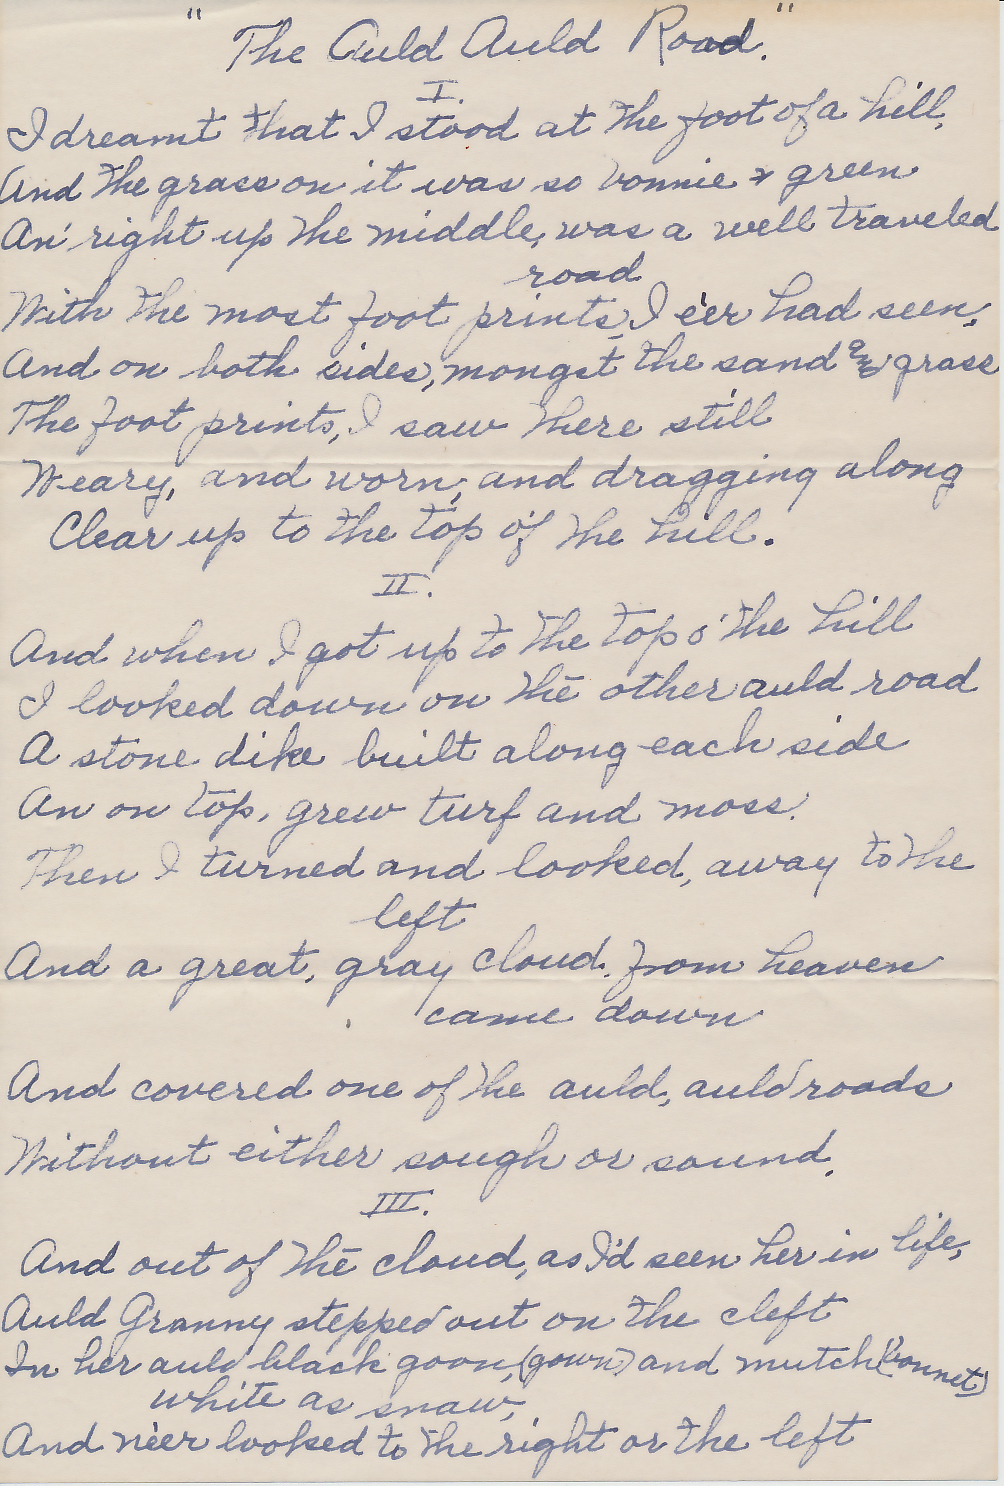 "The Auld Auld Road."
I.
I dreamt that I stood at the foot of a hill,
And the grass on it was so bonnie & green
An' right up the middle, was a well traveled
road
With the most foot prints, I e'er had seen,
And on both sides, mongst the sand and grass
The foot prints, I saw there still
Weary, and worn, and dragging along
Clear up to the top o'f the hill.
II.
And when I got up to the top o' the hill
I looked down on the other auld road
A stone dike built along each side
An on top, grew turf and moss.
Then I turned and looked, away to the
left
And a great, gray cloud, from heaven
came down
And covered one of the auld, auld roads
Without either sough or sound.
III.
And out of the cloud, as I'd seen her in life,
Auld Granny stepped out on the cleft
In her auld black goon, (gown) and mutch (bonnet)
white as snaw,
And ne'er looked to the right or the left